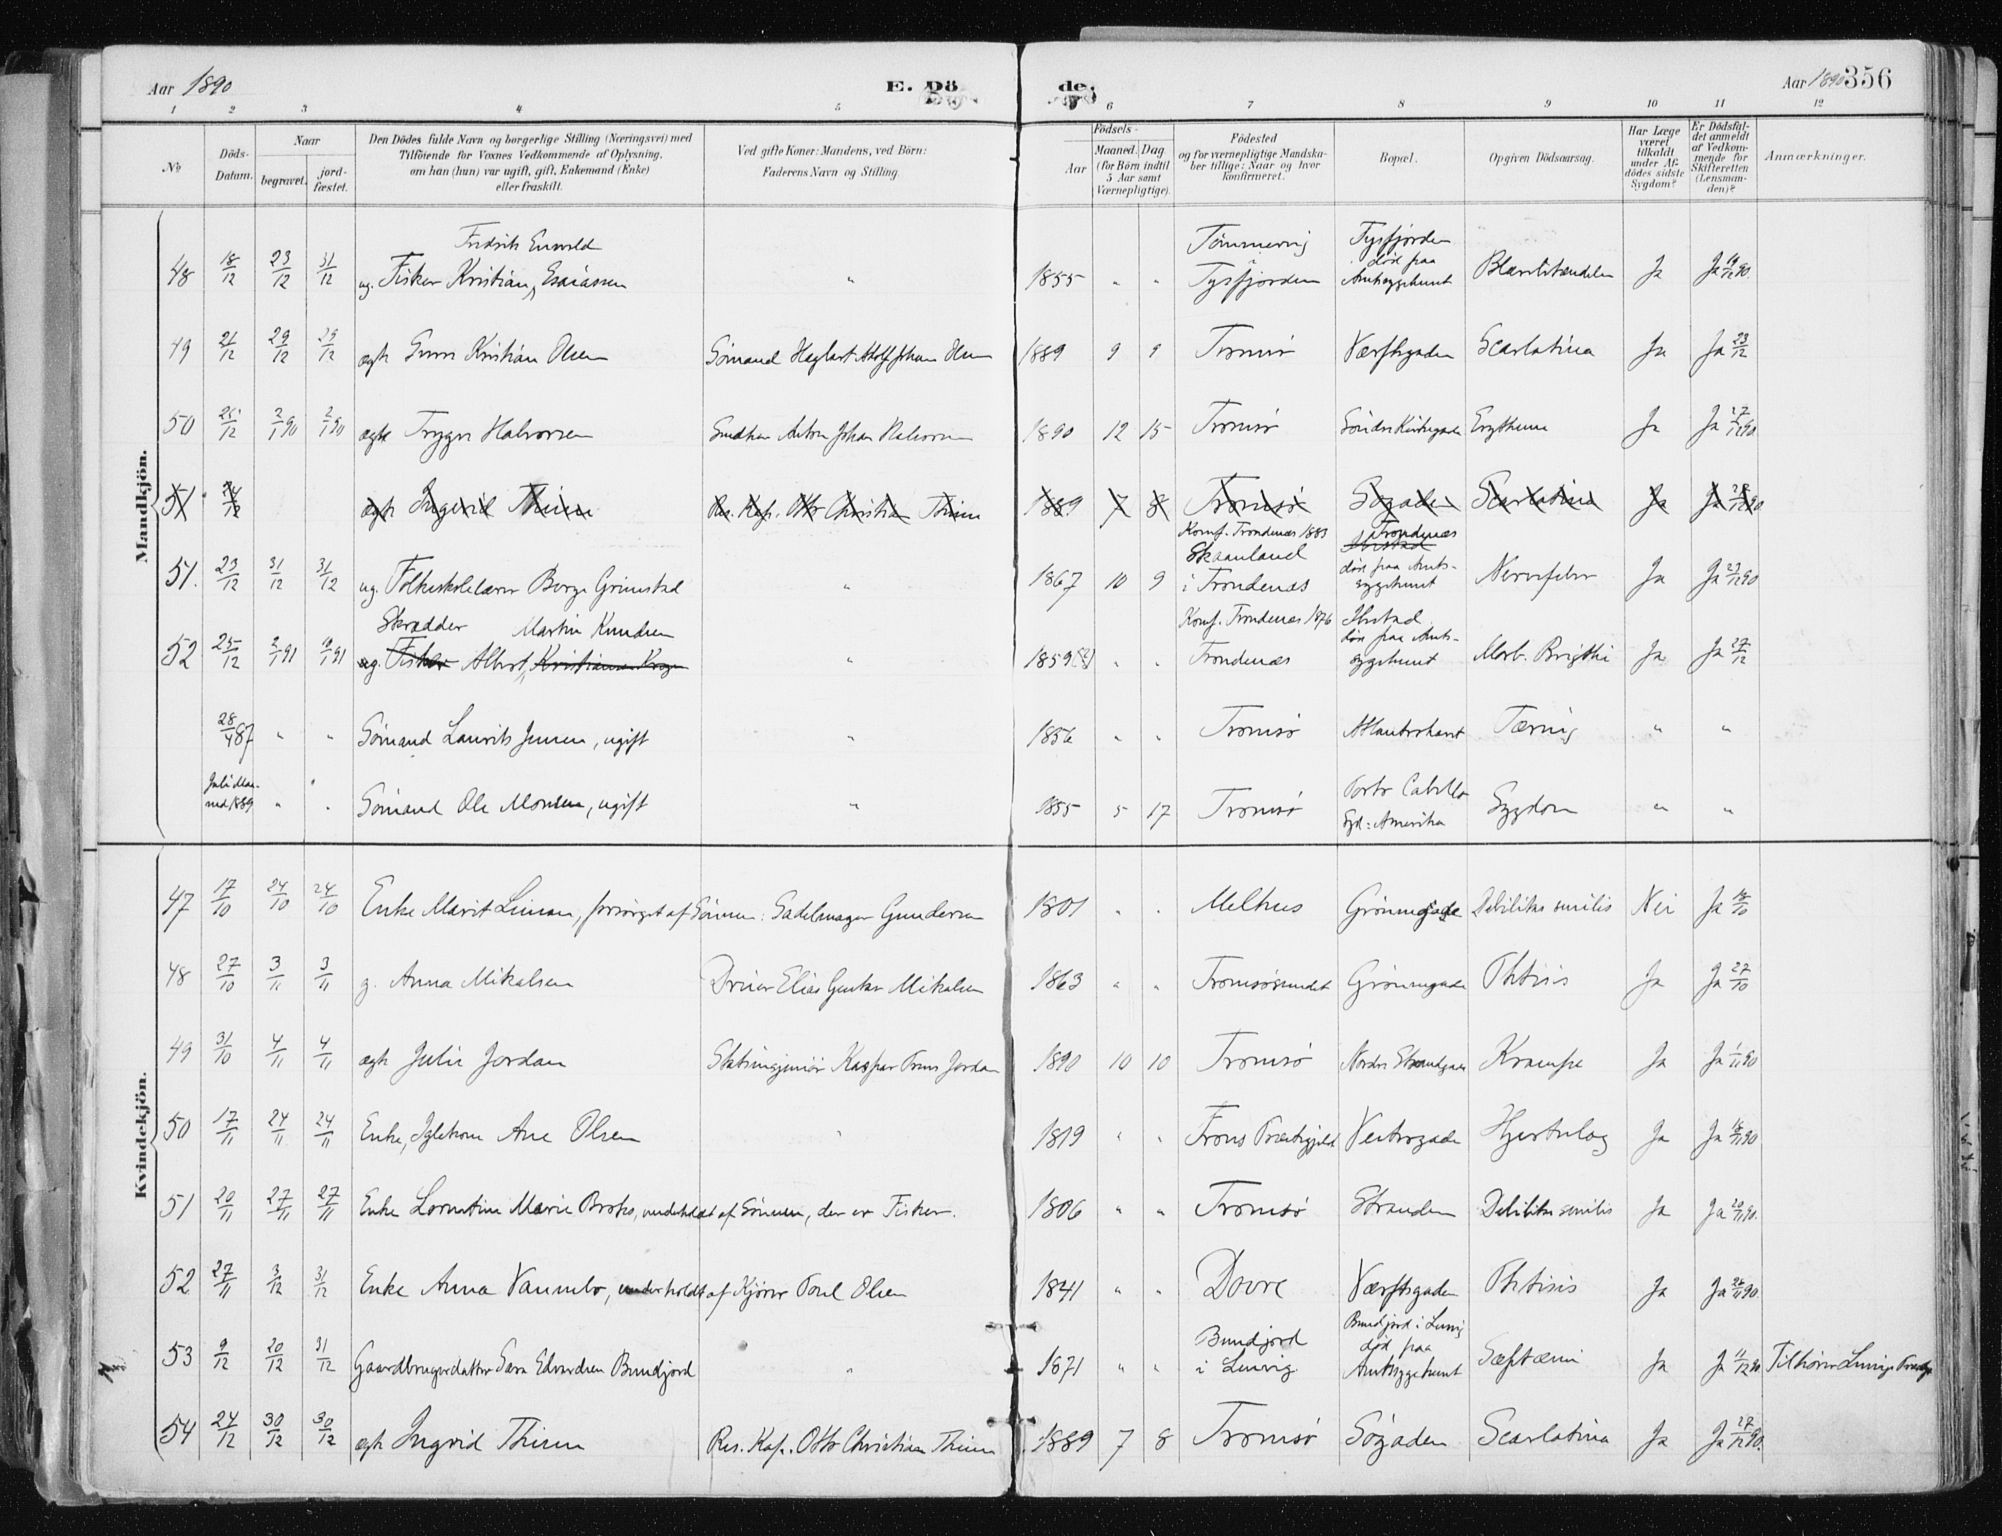 Aar 1890
E. Döde.
Aar 1890 356
1 2 3 4 5 6 7 8 9 10 11 12
No
Döds-Datum.
Naar
begravet.
jord-fæstet.
Den Dödes fulde Navn og borgerlige Stilling (Næringsvei) med
Tilföiende for Voxnes Vedkommende af Oplysning,
om han (hun) var ugift, gift, Enkemand (Enke)
eller fraskilt.
Ved gifte Koner: Mandens, ved Börn:
Faderens Navn og Stilling.
Födsels-
Aar
Maaned. Dag
(for Börn indtil
5 Aar samt
Værnepligtige).
Födested
og for værnepligtige Mandska-
ber tillige: Naar og hvor
konfirmeret.
Bopæl.
Opgiven Dödsaarsag.
Har Læge
været
tilkaldt
under Af-
dödes sidste
Sygdom?
Er Dödsfal-
det anmeldt
af Vedkom-
mende for
Skifteretten
(Lensman-
den)?
Anmærkninger.
Mandkjön.
48 18/12 23/12 31/12 ug. Fisker Kristian Fredrik Esaiassen " 1855 " " Tømmervig Tysfjorden Tysfjorden død paa Amtssygehuset Ja Ja 90
49 21/12 29/12 29/12 ægte Kristian Olsen Sømand 1889 9 9 Tromsø Værftsgaden Scarlatina Ja Ja 23/12
50 25/12 2/1 90 2/1 90 ægte Trygve Halvorsen Anton Johan Halvorsen 1890 12 15 Tromsø Søndre Kirkegade Erythema Ja Ja 27/12 90
51 24/12 ægte Ingerid Thiesen Res. Kap. Otto Christian Thiesen 1889 7 8 Tromsø Søgaden Scarlatina Ja Ja 90
51. 23/12 31/12 31/12 ug. Folkeskolelærer Borge Grimstad " 1867 10 9 Konf. Trondenæs 1883 Skaanland i Trondenæs Trondenæs død paa Amts-sygehuset Nervefeber Ja Ja 90
52 25/12 2/1 91 1/91 ug. Skrædder Fisker Albert Martin Knudsen 1859 " " Konf. Trondenæs 1876 Trondenæs død paa Amts-sygehuset Morb. Brigthi Ja Ja 27/12
28/4 87 " " Sømand Laurits Jensen, ugift " 1856 " " Tromsø Atlanterhavet Tæring " "
Juli Maaned 1889 " " Sømand Ole Monsen, ugift " 1855 5 17 Tromsø Porto Cabello Syd-Amerika Sygdom " "
Kvindekjön.
47 17/10 24/10 24/10 Enke Marit Larsen, forsørget af Sønnen: Sadelmager Gundersen 1801 " " Melhus Grønnegade Debilitas senilis Nei Ja 18/10
48 27/10 3/11 3/11 g. Anna Mikalsen Driver Elias Gustav Mikalsen 1863 " " Tromsøsundet Grønnegade Phtisis Ja Ja 27/10
49 31/10 4/11 4/11 ægte Julie Jordan Statsingeniør Kaspar Jordan 1890 10 10 Tromsø Nordre Strandgade Krampe Ja Ja 1/11 90
50 17/11 24/11 24/11 Enke, Ane Olsen " 1819 " " Trons Præstegjeld Vestregade Hjerteslag Ja Ja 18/11 90
51 20/11 27/11 27/11 Enke Lorentine Marie Broks, underholdt af Sønnen, der er Fisker. 1806 " " Tromsø Stranden Debilitas senilis Ja Ja 20/11 90.
52 27/11 3/12 31/12 Enke Anna Vannebo, underholdt af Kjører Poul Olsen 1841 " " Dovre Værftsgaden Phtisis Ja Ja 90.
53 9/12 20/12 31/12 Gaardbrugerdatter Sara Edvardsen Bundjord " 1871 " " Bundjord i Lenvig Bundjord i Lenvig død paa Amtssygehuset Ja Ja 90 Tilhører Lenvigs Præstg.
54 24/12 30/12 30/12 ægte Ingrid Thiesen Res. Kap. Otto Christian Thiesen 1889 7 8 Tromsø Søgaden Scarlatina Ja Ja 27/12 90.